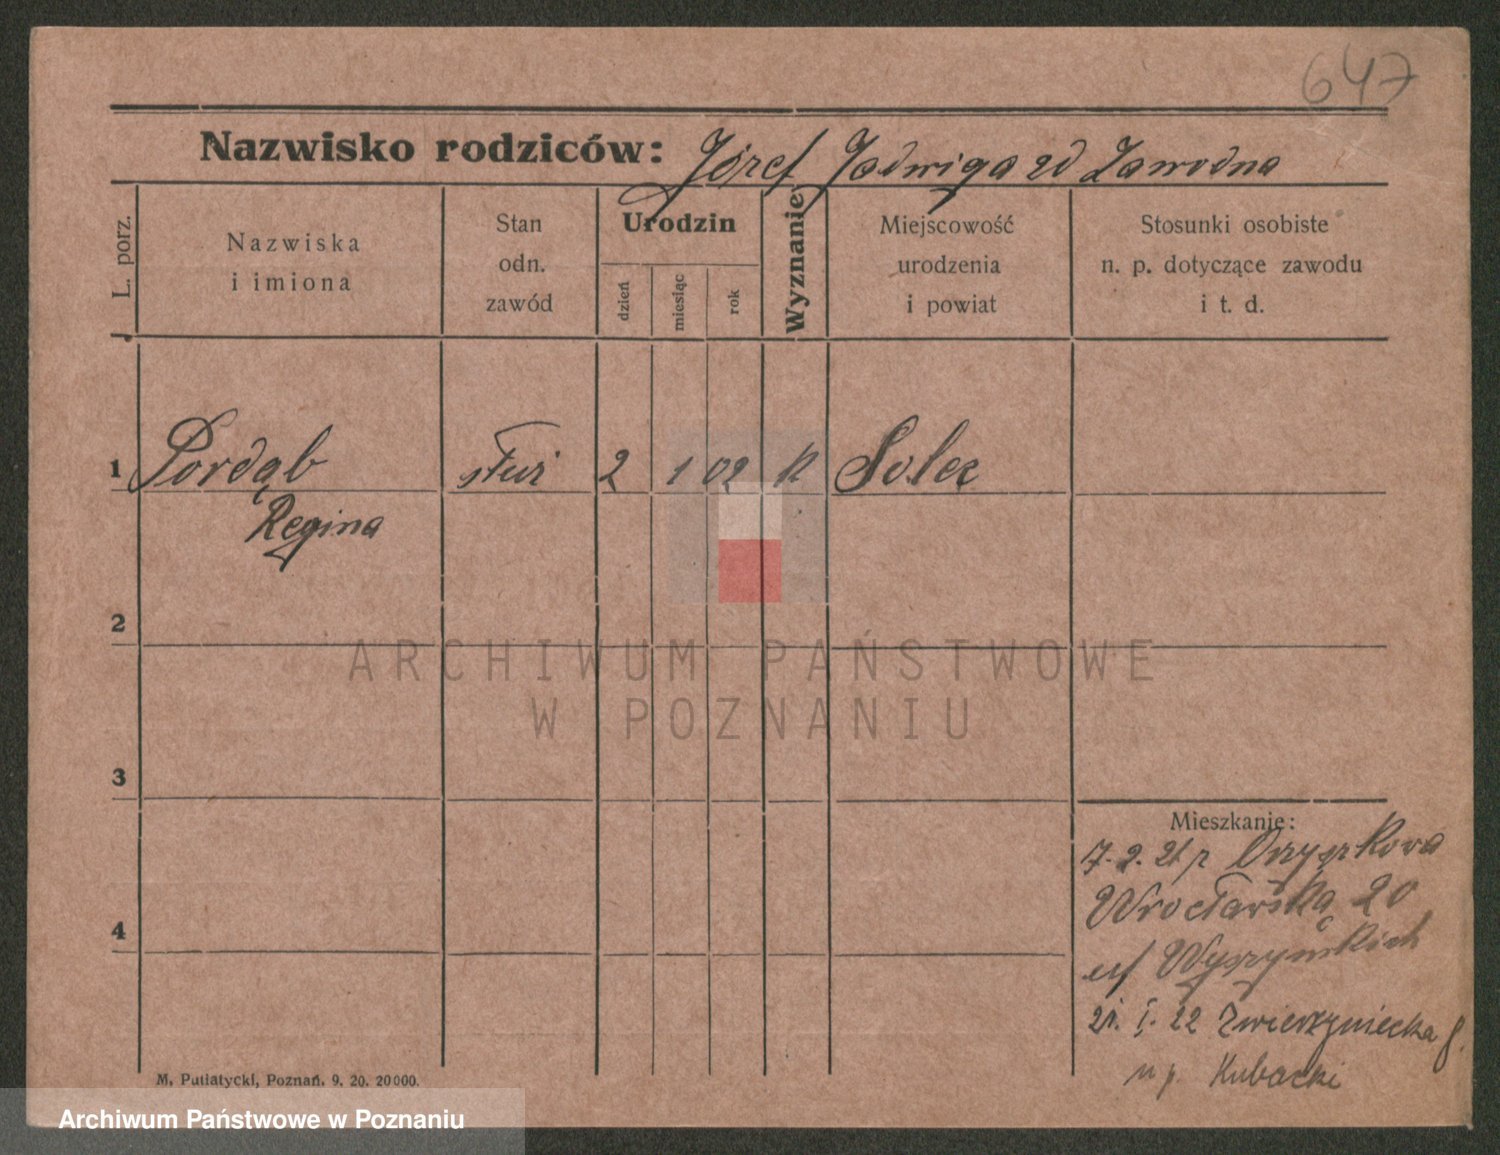 647
Nazwisko rodziców: Józef Jadwiga zd Zawodna
L. porz.
Nazwiska
i imiona
Stan
odn.
zawód
Urodzin
dzień
miesiąc
rok
Wyznanie
Miejscowość
urodzenia
i powiat
Stosunki osobiste
n. p. dotyczące zawodu
i t. d.
1 Pordąb służ 2 1 02 k Solec
Regina
2
ARCHIWUM PAŃSTWOWE
W POZNANIU
3
Mieszkanie:
17. 2. 21 z
Wrocławska 20
Wyszyńskich
4
21. I. 22 Zwierzyniecka 8.
u p. Kubacki
M. Putiatycki, Poznań. 9. 20. 20000.
Archiwum Państwowe w Poznaniu